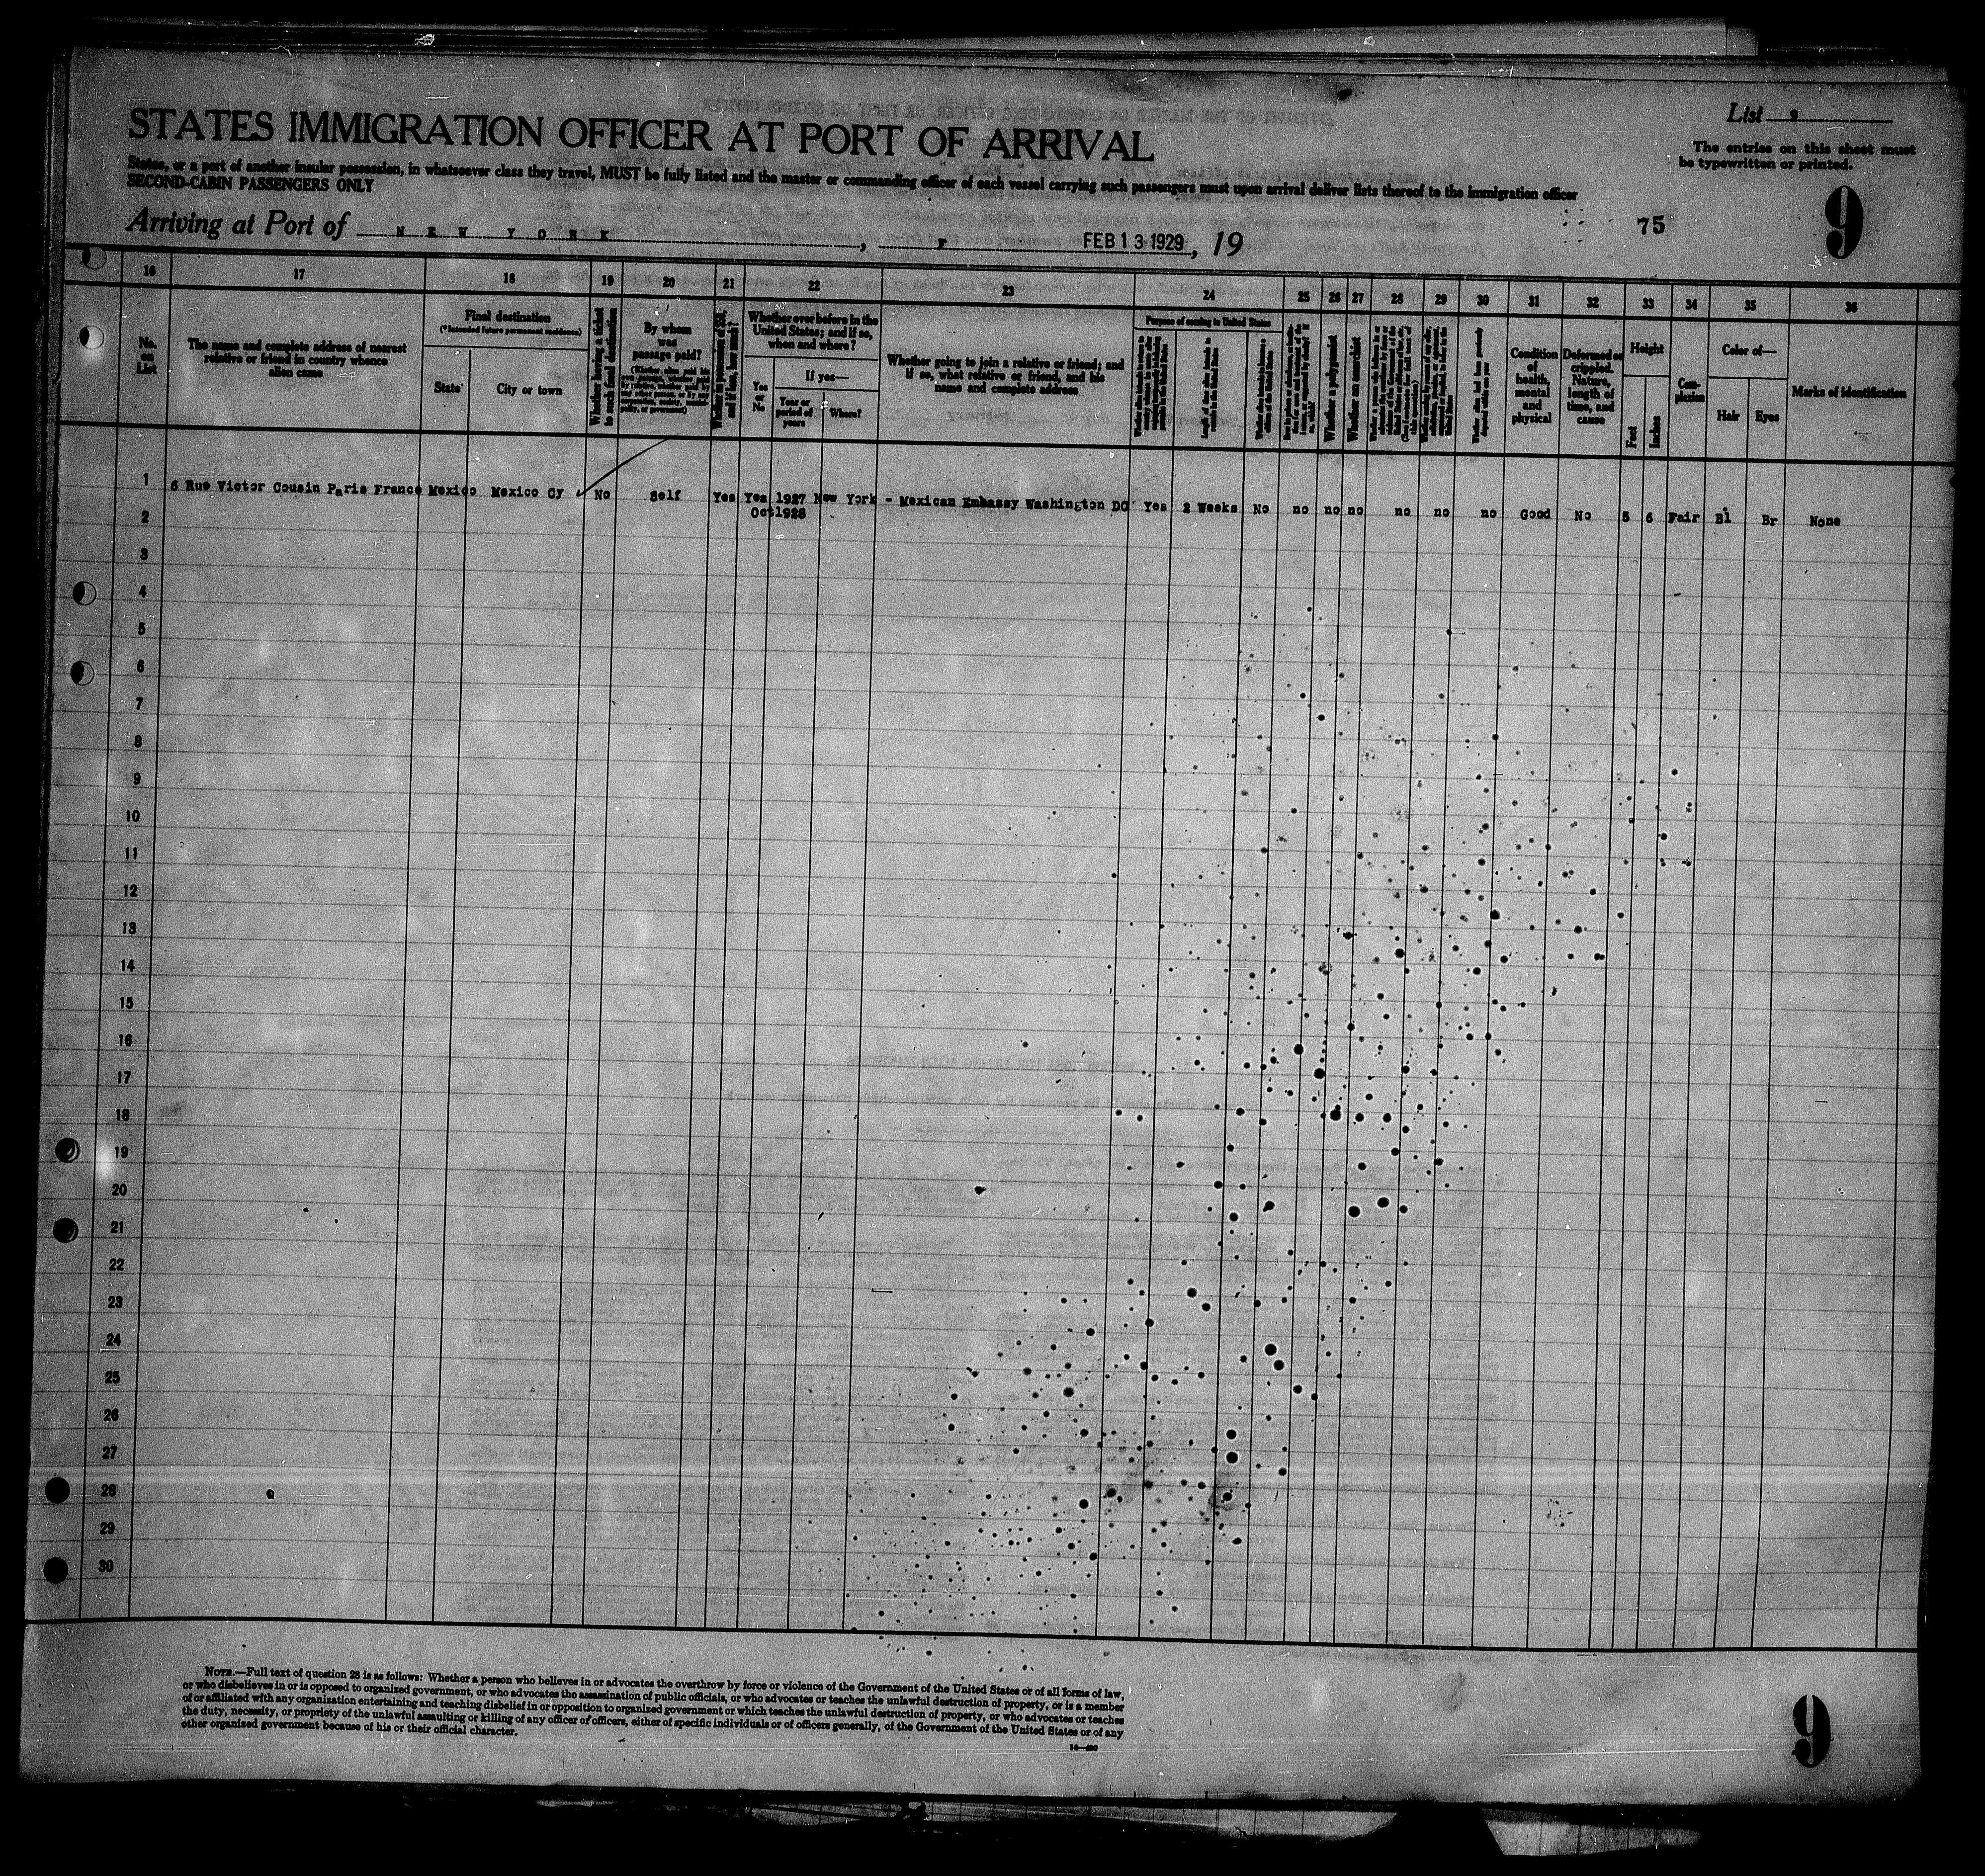 List 9
STATES IMMIGRATION OFFICER AT PORT OF ARRIVAL
The entries on this sheet must
be typewritten or printed.
States, or a port of another insular possession, in whatsoever class they travel, MUST be fully listed and the master or commanding officer of each vessel carrying such passengers must upon arrival deliver lists thereof to the immigration officer
SECOND-CABIN PASSENGERS ONLY
9
75
Arriving at Port of N E W Y O R K , F FEB 13 1929, 19
16 17 18 19 20 21 22 23 24 25 26 27 28 29 30 31 32 33 34 35 36
No.
on
List
The name and complete address of nearest
relative or friend in country whence
alien came
Final destination
(*Intended future permanent residence)
State
City or town
Whether having a ticket
to such final destination
By whom
was
passage paid?
Whether in possession of $50,
and if less, how much?
Whether ever before in the
United States; and if so,
when and where?
Yes
or
No
If yes—
Year or
period of
years
Where?
Whether going to join a relative or friend; and
if so, what relative or friend, and his
name and complete address
Purpose of coming in United States
Whether a polygamist
Whether an anarchist
Condition
of
health,
mental
and
physical
Deformed or
crippled.
Nature,
length of
time, and
cause
Height
Feet
Inches
Com-
plexion
Color of—
Hair
Eyes
Marks of identification
1 6 Rue Victor Cousin Paris France Mexico Mexico Cy No Self Yes Yes 1927 New York - Mexican Embassy Washington DC Yes 2 Weeks No no no no no no no Good No 5 6 Fair Bl Br None
Oct1928
2
3
4
5
6
7
8
9
10
11
12
13
14
15
16
17
18
19
20
21
22
23
24
25
26
27
28
29
30
NOTE.—Full text of question 28 is as follows: Whether a person who believes in or advocates the overthrow by force or violence of the Government of the United States or of all forms of law,
or who disbelieves in or is opposed to organized government, or who advocates the assassination of public officials, or who advocates or teaches the unlawful destruction of property, or is a member
of or affiliated with any organization entertaining and teaching disbelief in or opposition to organized government or which teaches the unlawful destruction of property, or who advocates or teaches
the duty, necessity, or propriety of the unlawful assaulting or killing of any officer or officers, either of specific individuals or of officers generally, of the Government of the United States or of any
other organized government because of his or their official character.
9